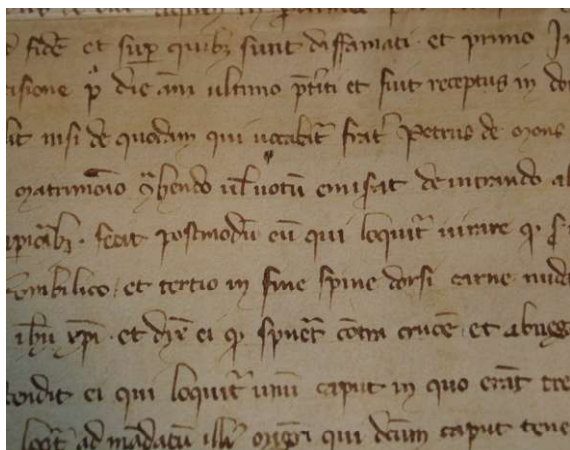 fidē et sup̱ quibꝫ sunt diffamati · et primo In
p̊ die añi ultimo p̄t̄iti et fuit receptus in do
nisi de quodam qui uocabat̄ frat̄ Petrus de mons
matrimōio ꝯ̄hendo ul̄ uotū emiserat de intrando al
fecit postmodū eū qui loquit̄ iurare ꝙ
ombilico · et tertio in fine spine dorsi carne nuda
ih̄u xp̄i · et dix̄ ei ꝙ spuet̄ cōtra crucē et abneg
ei qui loquit̄ unū caput in quo erāt tre
ad mādatū illi᷒ qui dc̄um caput tene